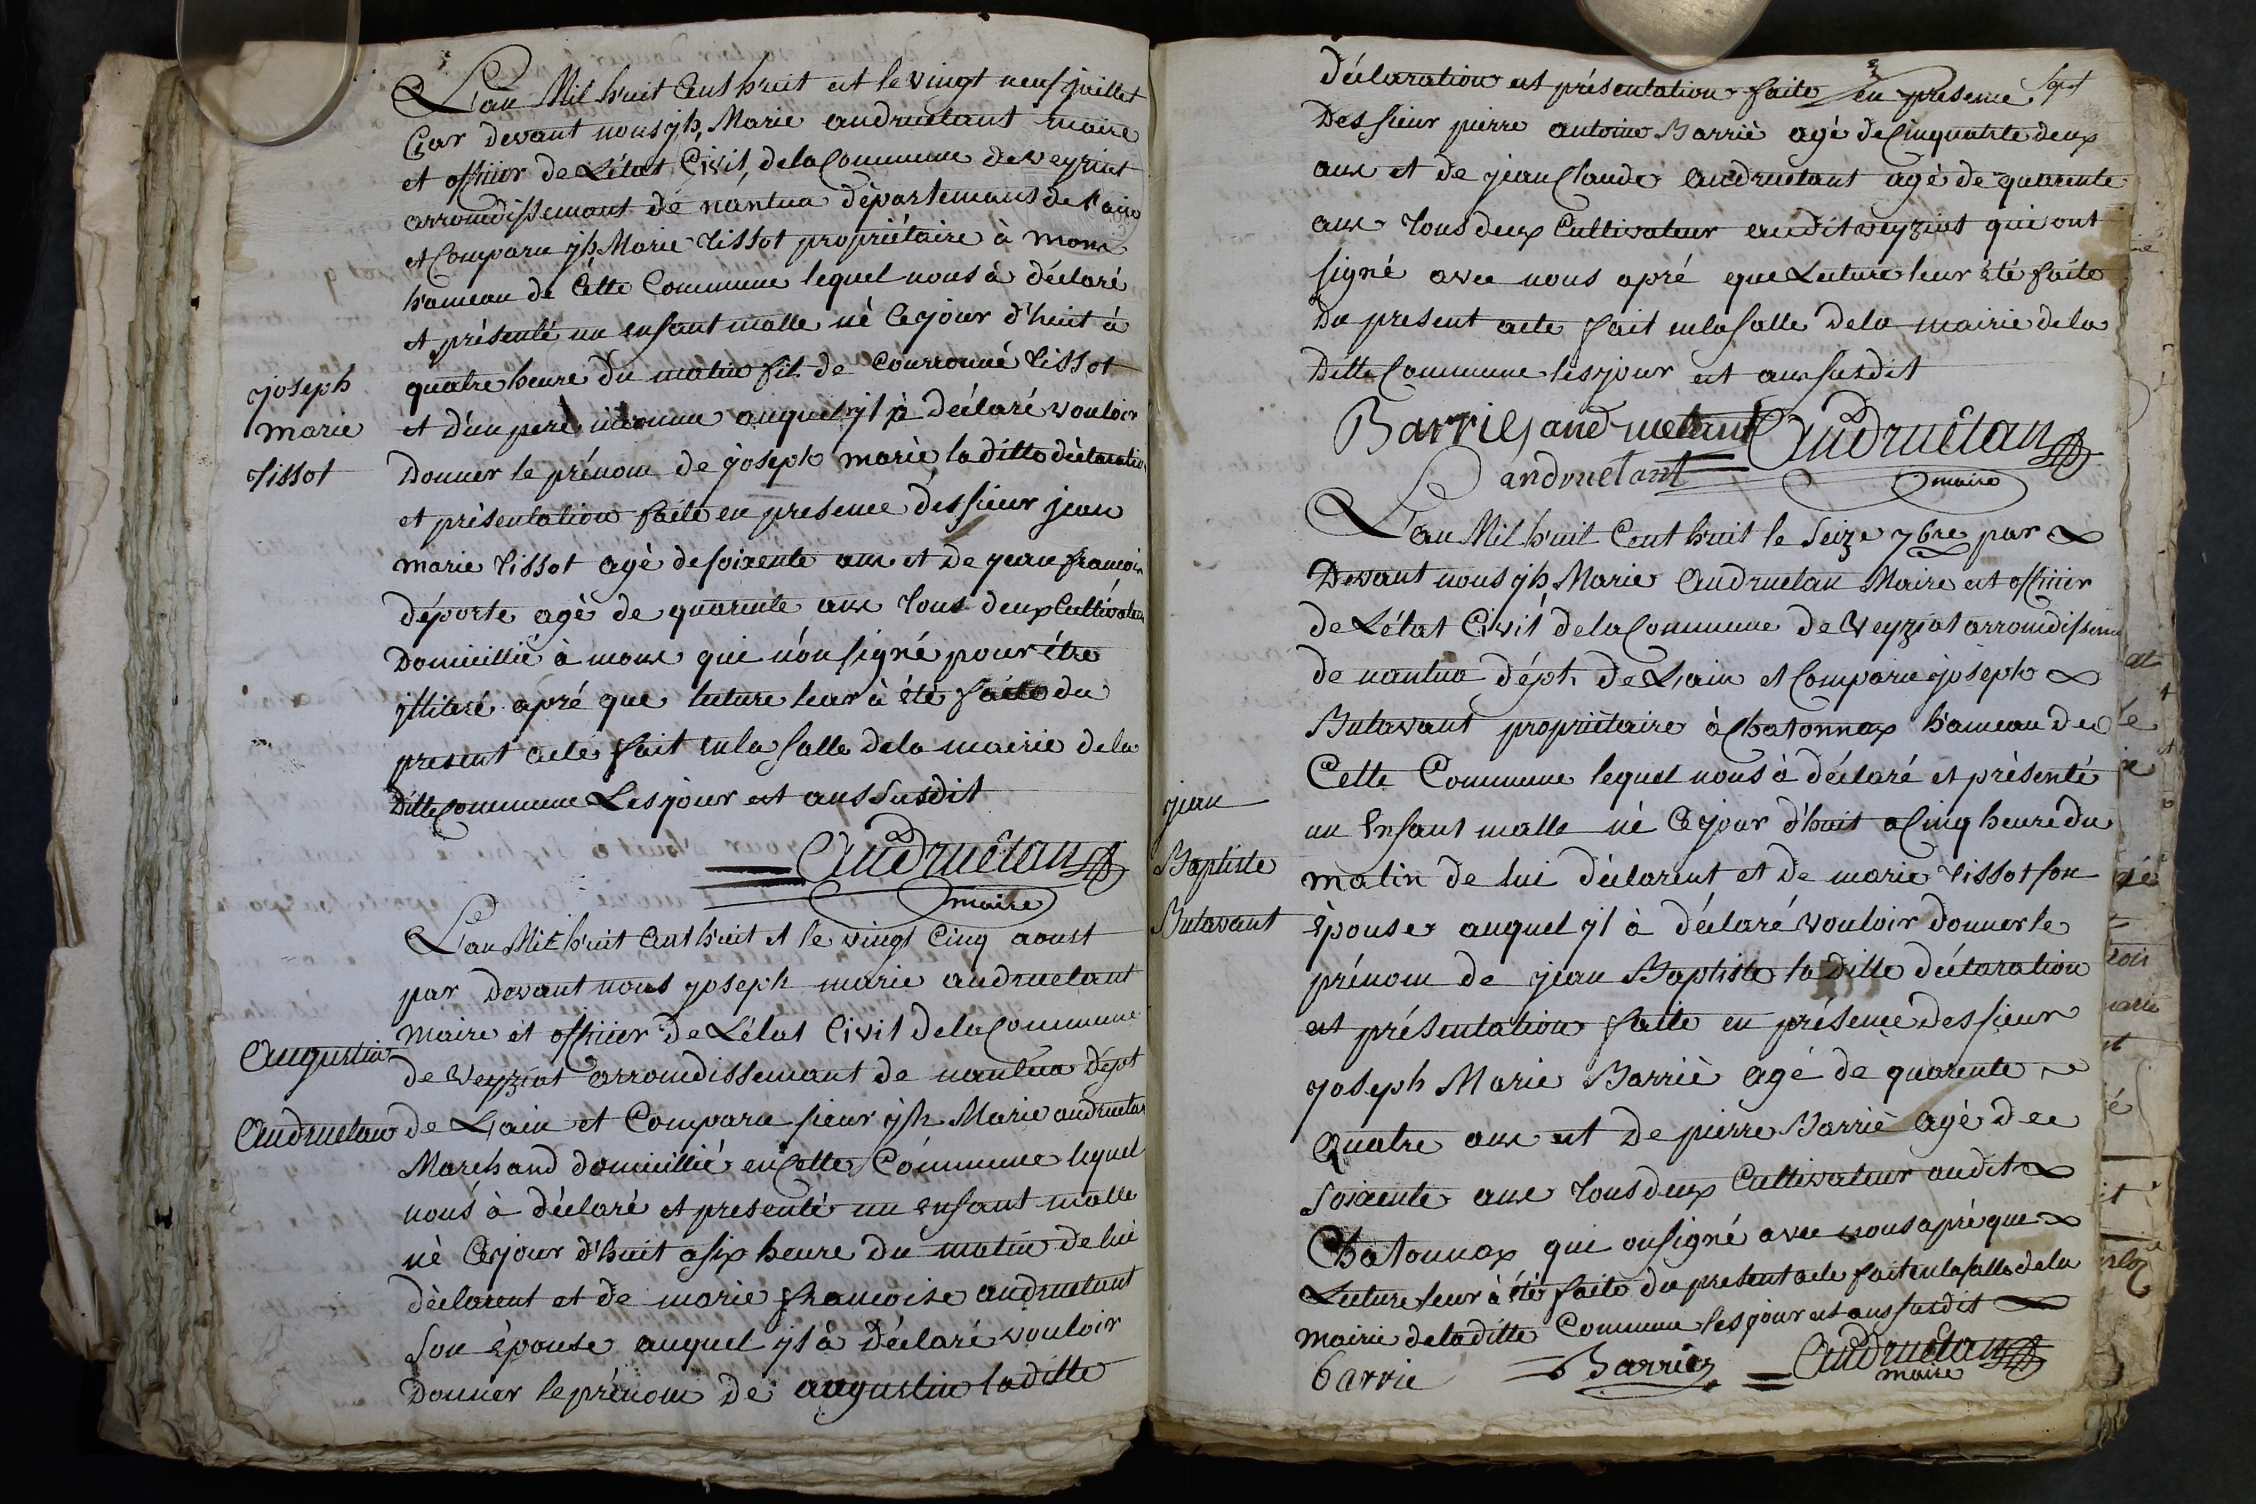 L'an Mil huit Cent huit et le vingt neuf juillet
Par devant nous jh Marie andruetant maire
et officier de L'état Civil, de la Commune de veyziat
arrondissement de nantua departemant de l'ain
et Comparu jh Marie tissot propriétaire à mons
hameau de Cette Commune lequel nous à déclaré
et présenté un enfant malle né Cejour d'huit à
quatre heure du matin fils de Couronné tissot
et d'un pere inconnu auquel yl à déclaré vouloir
Donner le prénom de joseph marie la ditte déclaration
et présentation faite en presence des sieur jean
marie tissot agé de soixente ans et de jean francois
déporte agé de quarente ans tous deux Cultivateur
Domicillié à mons qui n'on signé pour étre
jllitéré apré que lecture leur à été faite du
present acte fait en la salle de la mairie de la
Ditte Commune Les jour et ans susdit
Andruétan
maire
joseph
marie
tissot
L'an Mil huit Cent huit et le vingt Cinq aoust
par Devant nous joseph marie andruetant
Maire et officier de L'état Civil de la Commune
de Veyziat arrondissemant de nantua Dépt
de L'ain et Comparu sieur jph Marie andruetan
Marchand domicillié en Cette Commune lequel
nous à déclaré et presenté un enfant malle
né Cejour d'huit a six heure du matin de lui
déclarent et de marie francoise andruetant
son épouse auquel yl à Déclaré vouloir
Donner le prénom De augustin la ditte
Augustin
Andruetan
déclaration et présentation faite en presence
Des sieur pierre antoine Barrié agé de Cinquante deux
ans et de jean Claude andruetant agé de quarente
ans tous deux Cultivateur audit veyziat qui ont
signé avec nous apré que Lecture leur été faite
Du present acte fait en la salle de la mairie de la
Ditte Commune les jour et ans susdit
Barrie andruetant Andruétan
andruetant maire
L'an Mil huit Cent huit le seize 7bre par
Devant nous jh Marie Andruetan Maire et officier
de L'état Civil de la Commune de Veyziat arrondisseme
de nantua dépt. de L'ain et Comparu joseph
Butavant propriétaire à Chatonnax hameau de
Cette Commune lequel nous à déclaré et présenté
un enfant malle né Cejour d'huit a Cinq heure du
matin de lui déclarent et de marie tissot son
épouse auquel yl à déclaré vouloir donner le
prénom de jean Baptiste la ditte déclaration
et présentation faite en présence des sieur
joseph Marie Barrié agé de quarente
quatre ans et De pierre Barrié agé de
soixente ans tous deux Cultivateur audit
Chatonnax qui on signé avec nous apré que
Lecture leur à été faite du present acte fait en la salle de la
mairie de la ditte Commune les jour et ans susdit
barrie Barriez Andruétan
maire
jean
Baptiste
Butavant